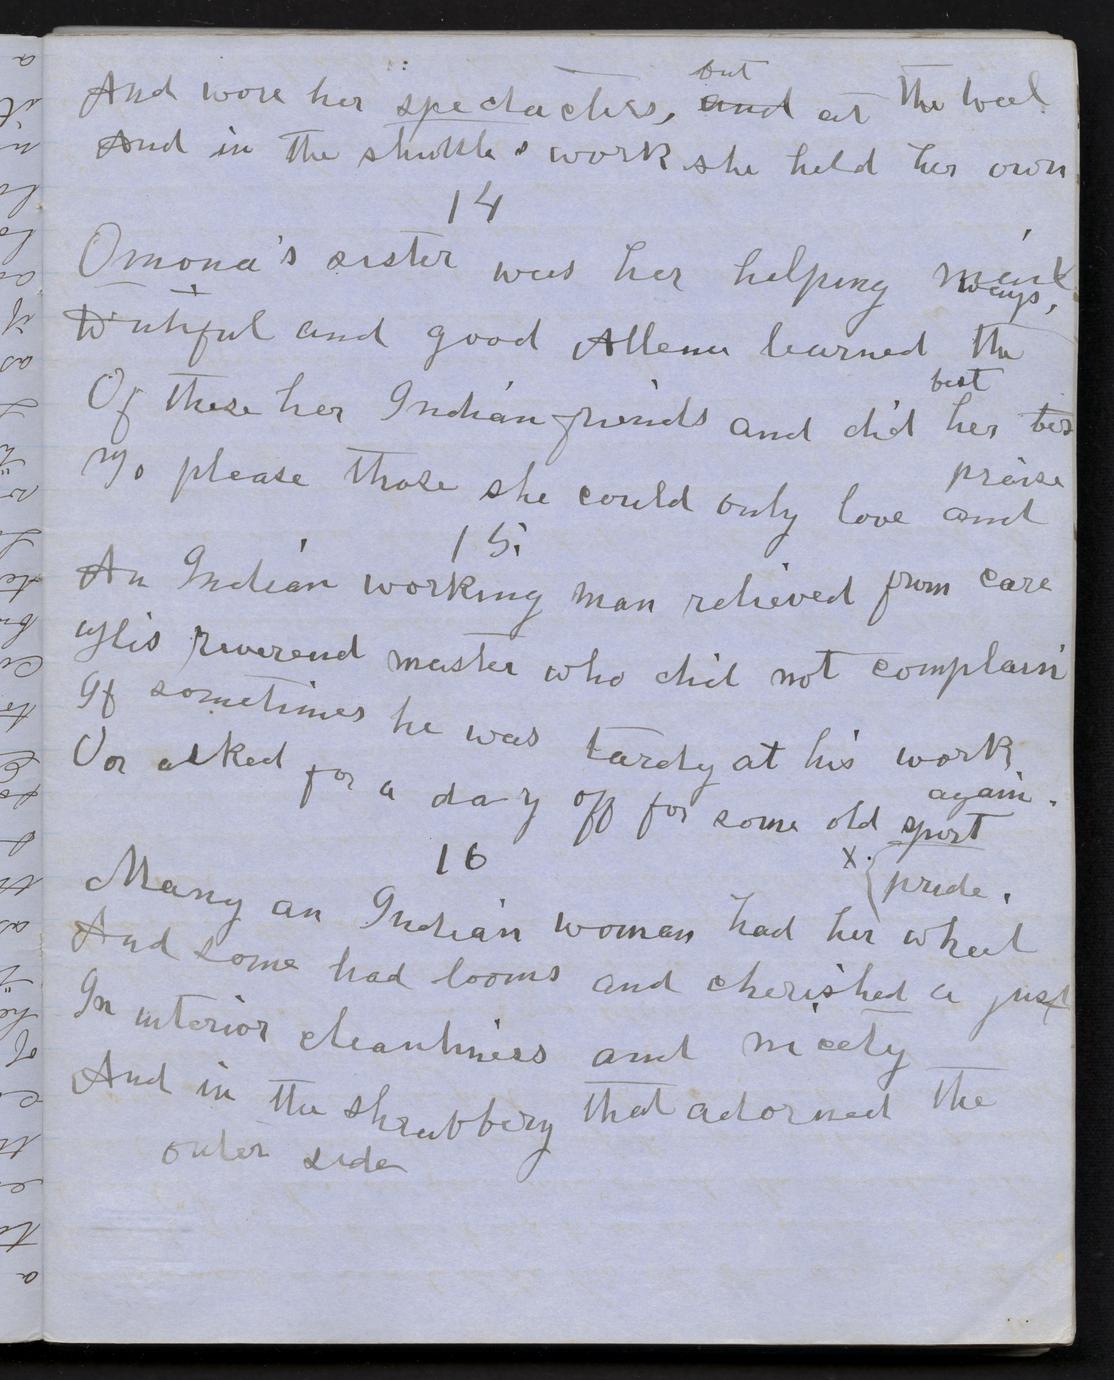 And wore her spectacles, and but at the weel
And in the shuttle's work she held her own
14
Omona's sister was her helping maid
Dutiful and good Allena learned the ways,
Of these her Indian friends and did her best
To please those she could only love and praise
15
An Indian working man relieved from care
His reverend master who did not complain
If sometimes he was tardy at his work
Or asked for a day off for some old sport again.
16
Many an Indian woman had her wheel
And some had looms and cherished a just x pride.
In interior cleanliness and nicety
And in the shrubbery that adorned the
outer side